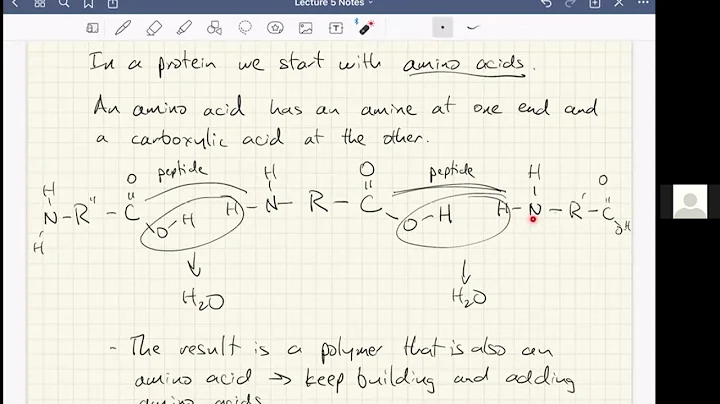 Lecture 5 Notes
In a protein we start with amino acids.
An amino acid has an amine at one end and
a carboxylic acid at the other.
peptide peptide
H O H O H O
H N-R"-C O-H H-N-R-C O-H H-N-R'-C OH
H
H2O H2O
- The result is a polymer that is also an
amino acid → keep building and adding
amino acids